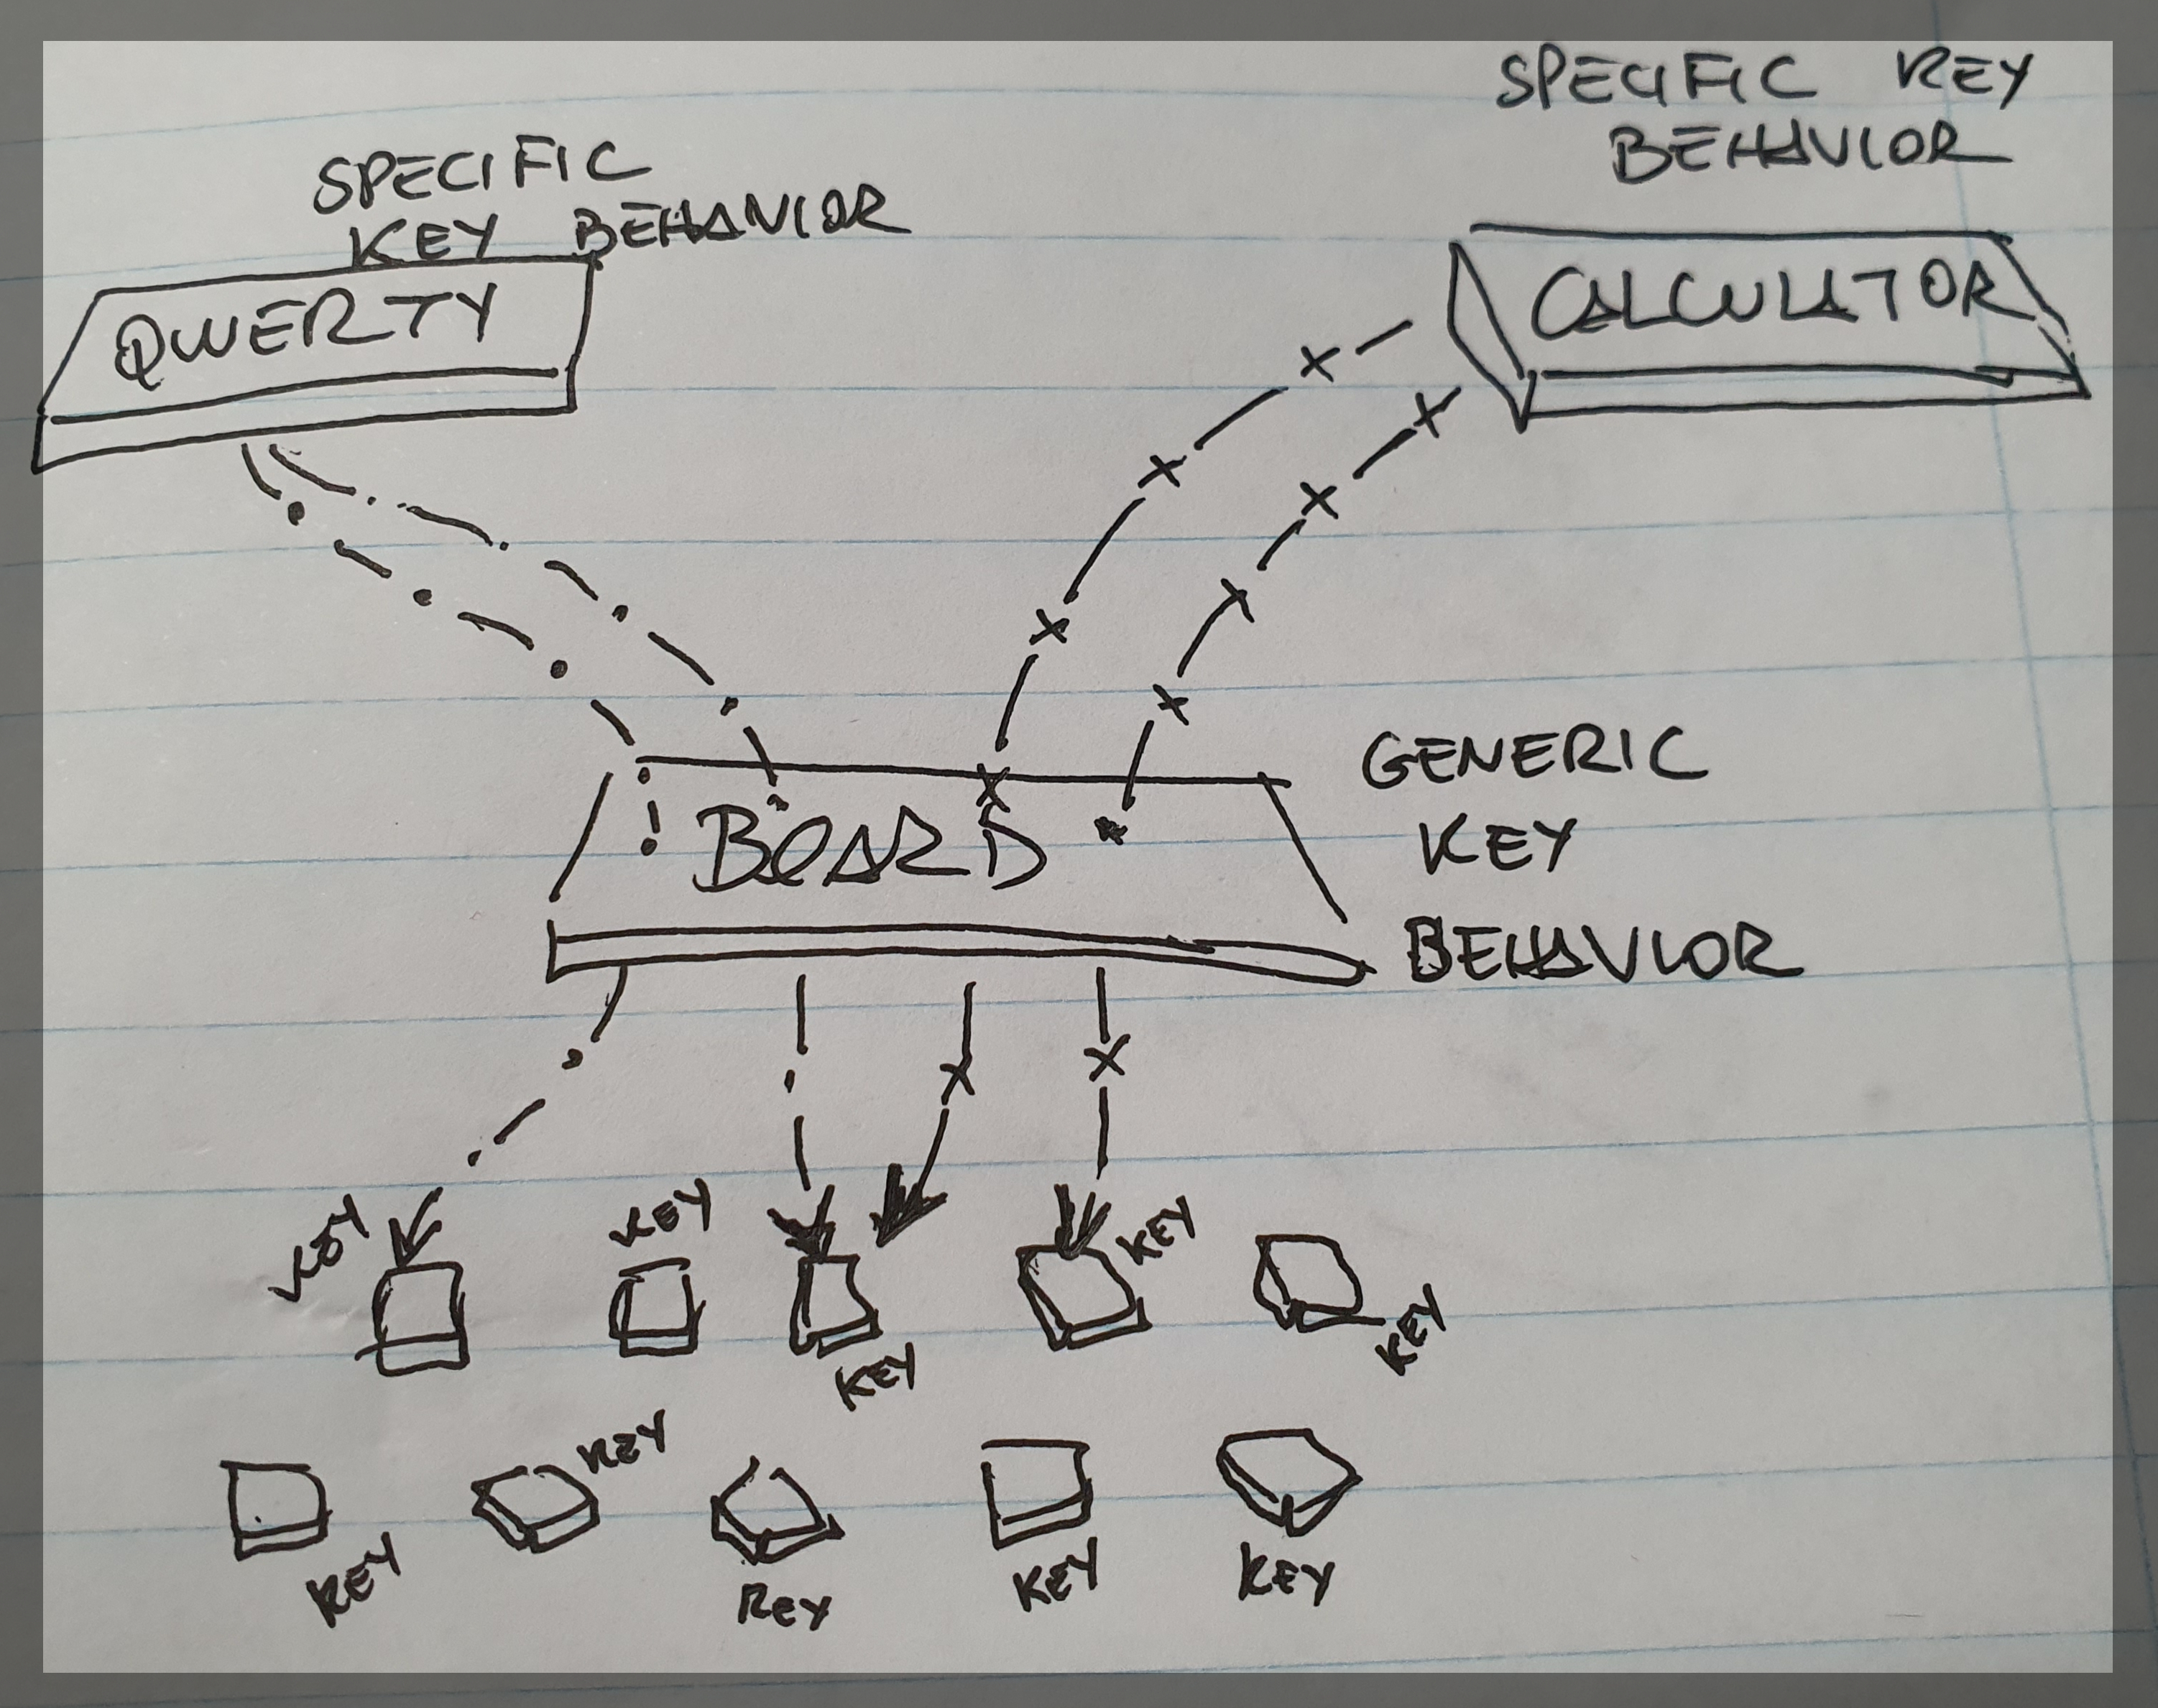 SPECIFIC KEY
BEHAVIOR
SPECIFIC
KEY BEHAVIOR
QWERTY
CALCULATOR
GENERIC
KEY
BEHAVIOR
BOARD
KEY
KEY
KEY
KEY
KEY
KEY
KEY
KEY
KEY
KEY